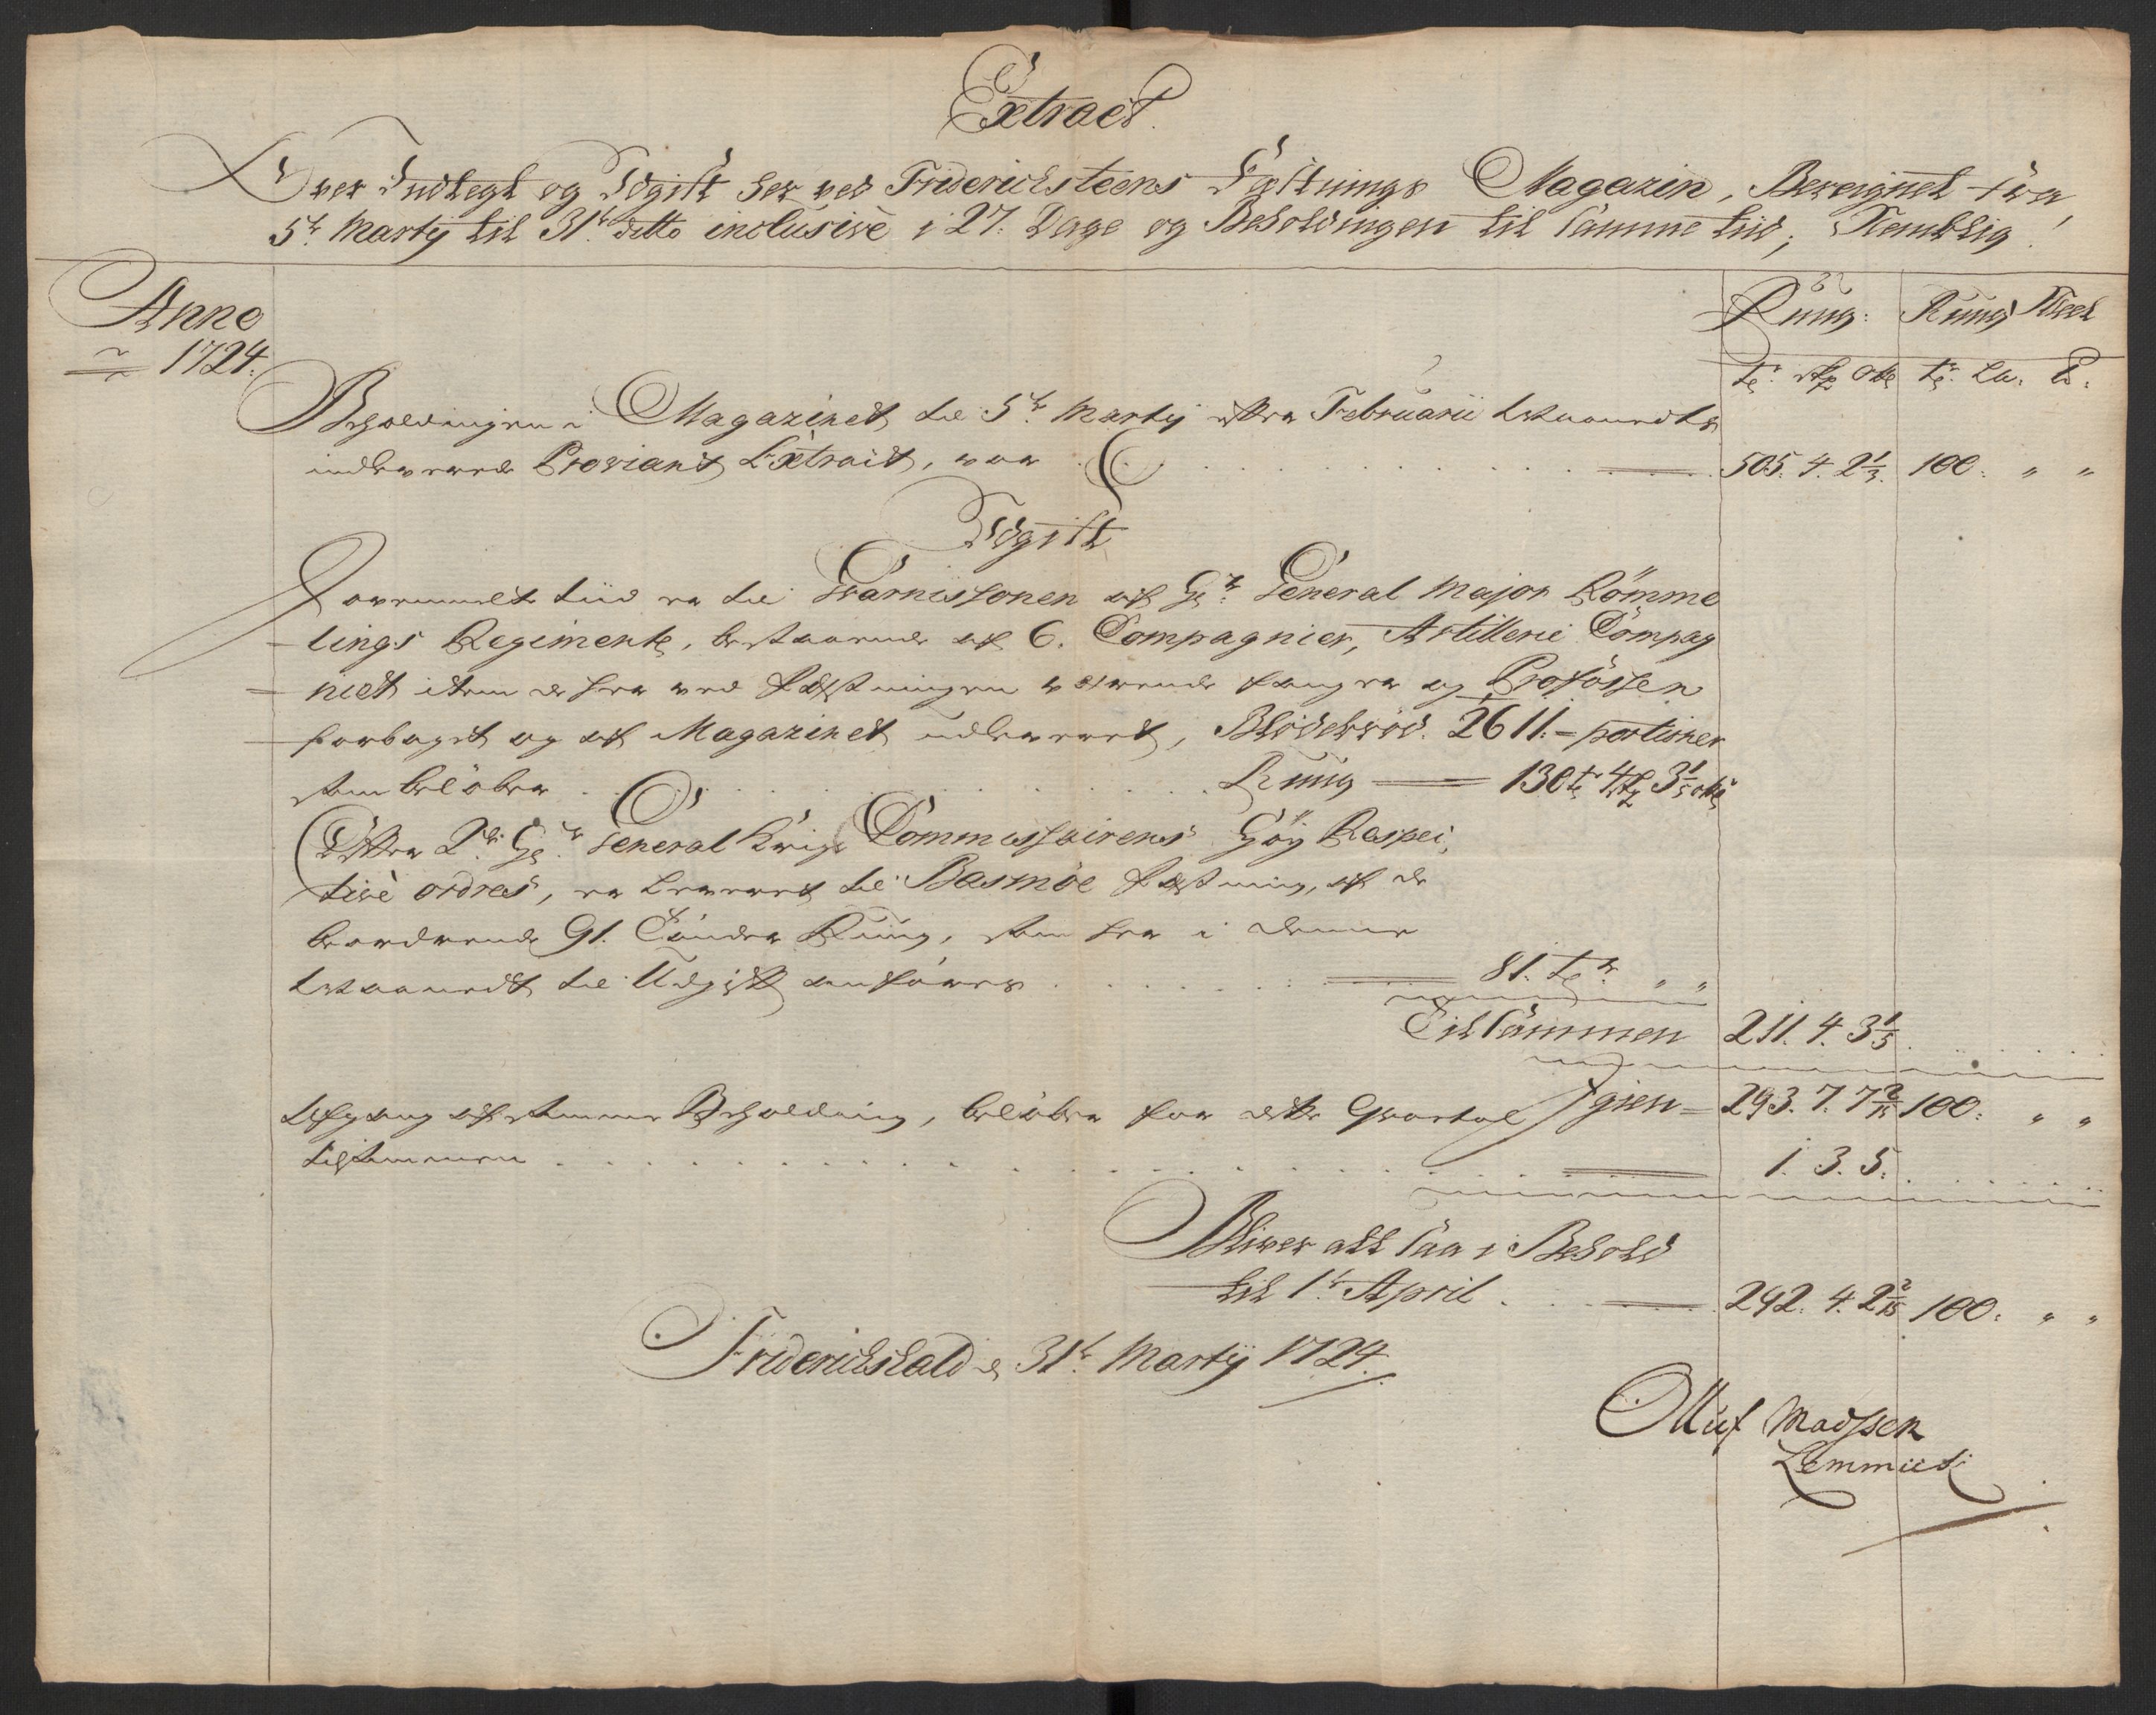 Extract.
Over Indtegt og Udgift her ved Friderichsteens Fæstnings Magazin, Bereignet fra
5te Martij til 31te ditto inclusive i 27. Dage og Beholdingen til samme tiid; Nemblig!
Anno
1724.
Ruug: Ruug Meel
te: Skp Otk te: Lb: P:
Beholdingen i Magazinet til 5te Martij efter Februarii Maanedts
indleverede Proviant Extract, var 505. 4. 2 1/3. 100: " "
Udgift
Jovenmelte tiid er til Garnissonen af Hr. General Major Römme
lings Regimente, bestaaende af 6. Compagnier, Artillerie Compag
niet item de her ved Fæstningen værende fanger og Profossen
forbaget og af Magazinet udleveret, Blödebröd. 2611.= portioner
som belöber Ruug 130te 4Skp 3 1/5 otk
Efter Hr. General Krigs Commissairens Höy Respec
tive ordres, er leveret til Basmoe Fæstning, af de
beordrende 91. Tönder Ruug, som her i denne
Maanedt til Udgift anföres 81. ter " "
Tilsammen 211. 4. 3 1/5
Igien 293. 7. 7 2/15 100: " "
Afgang af samme Beholding, belöber for dette Qvartal
tilsammen 1. 3. 5.
Bliver alt saa i Behold
til 1te April 292. 4. 2 2/15 100: " "
Friderichshald d. 31te Martij 1724.
Oluf Madssen
Lemmich